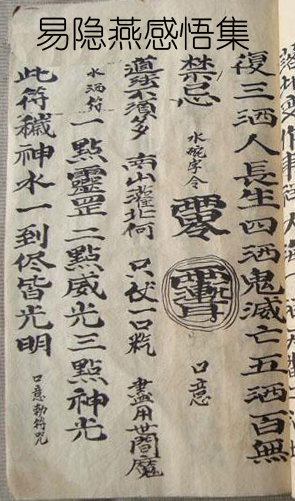 易隐燕感悟集
復三洒人長生四洒鬼滅亡五洒百無
禁忌 水碗字令 口意
不須多 南山灌北何 只伏一口 盡用世間魔
水洒符 一點靈罡二點威光三點神光
此符穢神水一到侭皆光明 口意勅符咒